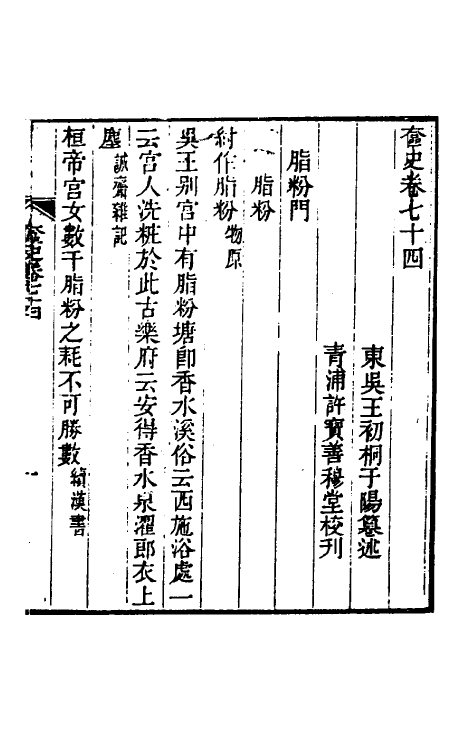 奩史卷七十四
東吳王初桐于陽纂述
青浦許寶善穆堂校刊
脂粉門
一 脂粉
紂作脂粉物原
吳王别宮中有脂粉塘卽香水溪俗云西施浴處一
云宮人洗粧於此古樂府云安得香水泉濯郎衣上
塵誠齋雜記
桓帝宮女數千脂粉之耗不可勝數續漢書
奩史卷七十四
一